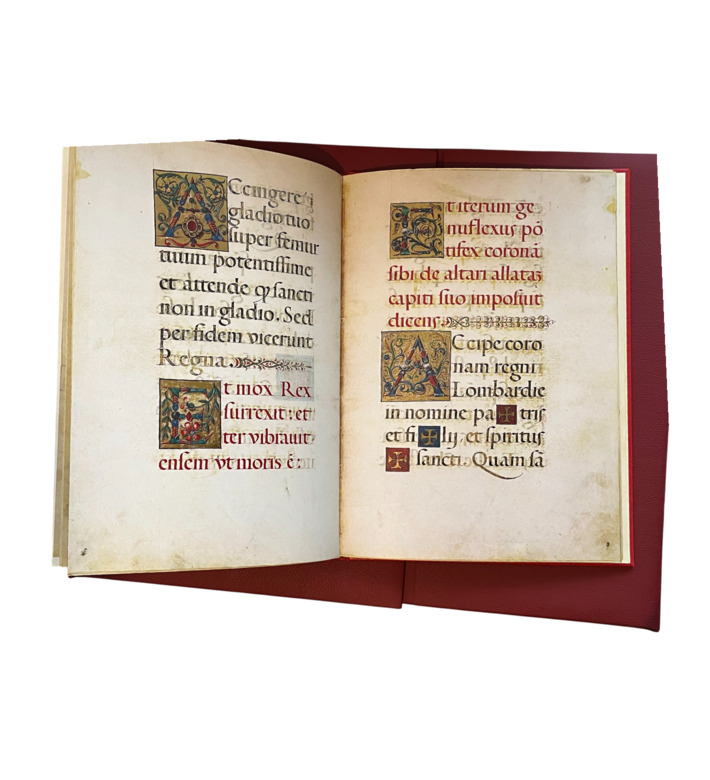 Accingere
gladio tuo
super femur
tuum potentissime
et attende qƺ sancti
non in gladio. Sed
per fidem vicerunt
Regna.
Et mox Rex
surrexit: et
ter vibrauit
ensem vt moris ē:
Et iterum ge
nuflexus pō
tifex coronā
sibi de altari allatāƺ
capiti suo imposuit
dicens
Accipe coro
nam regni
Lombardie
in nomine pa✠tris
et fi✠lij et spiritus
✠sancti. Quam sā